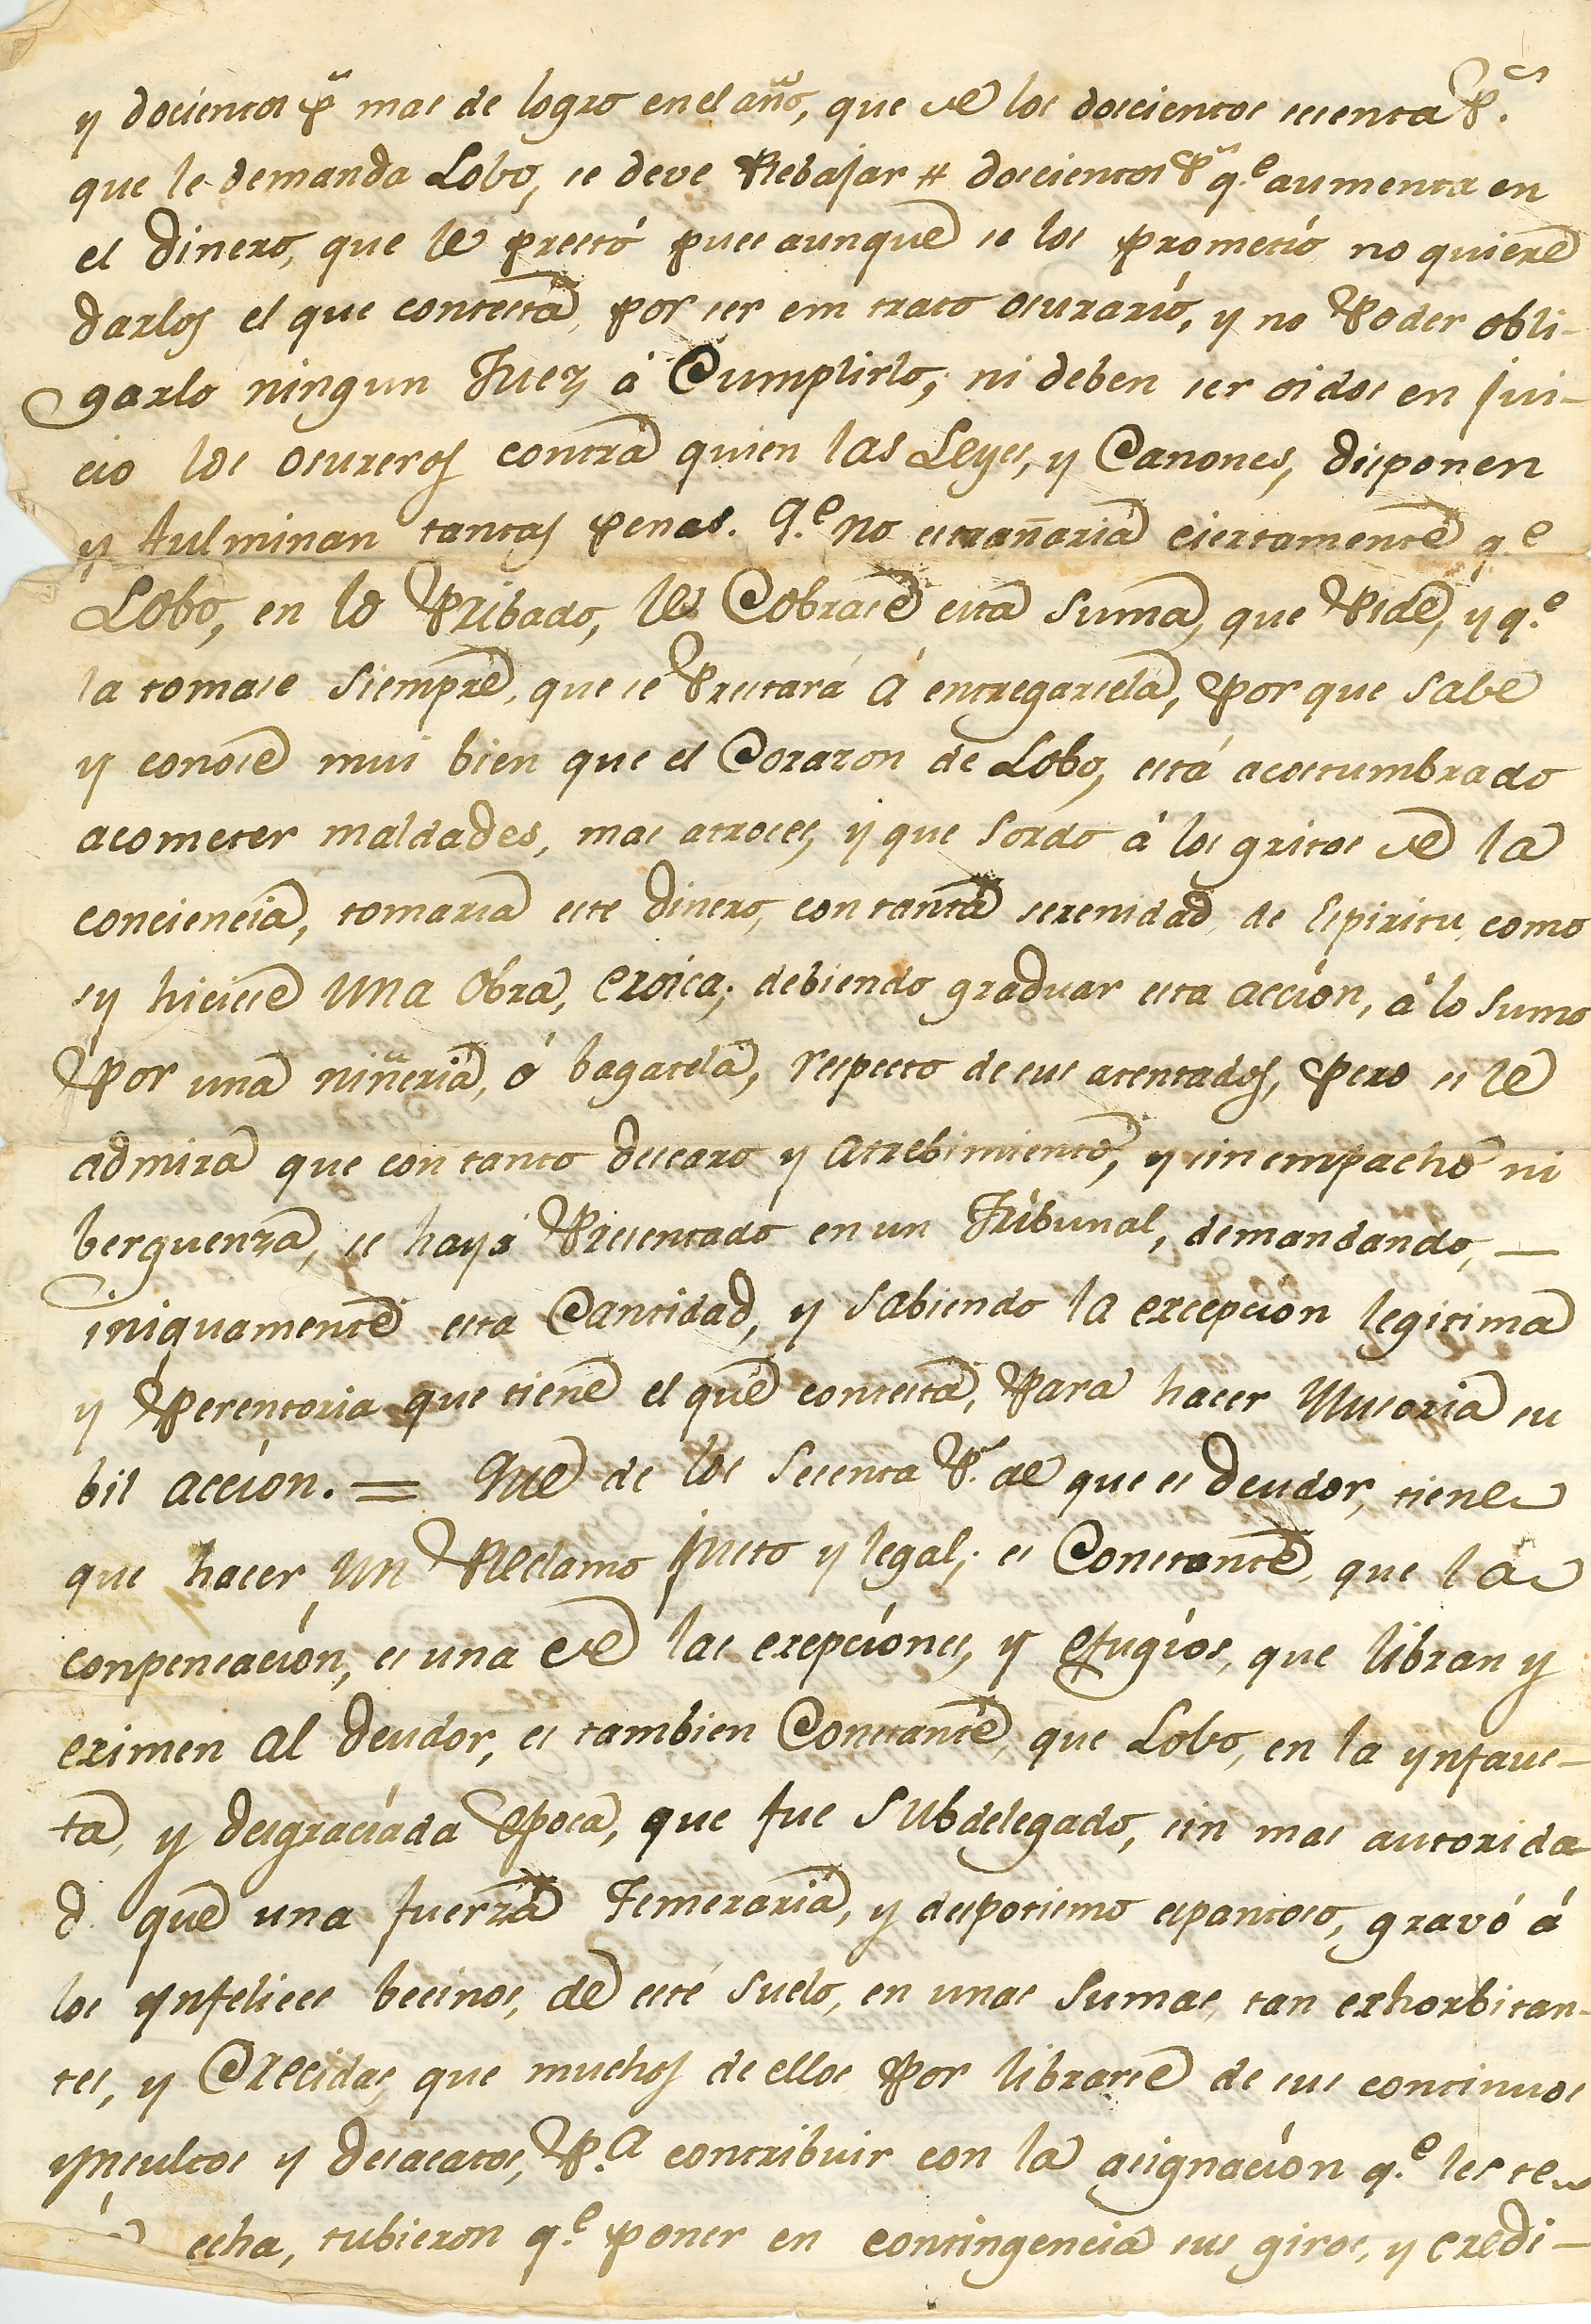 y docientos p.s mas de logro en el año, que de los doscientos sesenta p.s
que le demanda Lobo, se deve Rebajar # doscientos p.s q.e aumenta en
el dinero, que le prestó pues aunque se los prometió no quiere
darlos el que contesta, por ser em trato osurario, y no Poder obli-
garlo ningun Juez á Cumplirlo; ni deben ser oidos en jui-
cio los osureros contra quien las Leyes, y Canones, disponen
y fulminan tantas penas. Q.e no estrañaria ciertamente q.e
Lobo, en lo Pribado, le Cobrase esta Suma, que Pide, y q.e
la tomase siempre, que se Prestará á entregarsela, Por que Sabe
y conose mui bien que el Corazon de Lobo, está acostumbrado
acometer maldades, mas atroses, y que Sordo á los gritos de la
conciencia, tomaria este dinero, con tanta serenidad, de Espiritu, como
sy hiciese una Obra, eroica; debiendo graduar esta acción, á lo Sumo
Por una niñeria, ó bagatela, respecto de sus atentados, Pero si le
admira que con tanto descaro y atrebimiento, y sin empacho ni
berguenza, se haya Presentado en un Tribunal, demandando, —
iniquamente esta Cantidad, y Sabiendo la excepción legitima
y Perentoria que tiene el que contesta, Para hacer Ylusoria su
bil acción. = Que de los Sesenta P.s de que es deudor, tiene
que hacer un Reclamo justo y legal; es Constante, que la
conpensación, es una de las exepciónes, y efugios, que libran y
eximen al deudor, es tambien Constante, que Lobo, en la ynfaus-
ta, y desgraciada Epoca, que fue Subdelegado, sin mas autorida
d. que una fuerza Temeraria, y despotismo espantoso, gravó á
los ynfelices becinos, de este Suelo, en unas Sumas, tan exhorbitan-
tes, y Crecidas, que muchos de ellos Por librarse de sus continuos
ynsultos y desacatos, P.a contribuir con la asignación q.e les te
echa, tubieron q.e poner en contingencia sus giros, y credi-